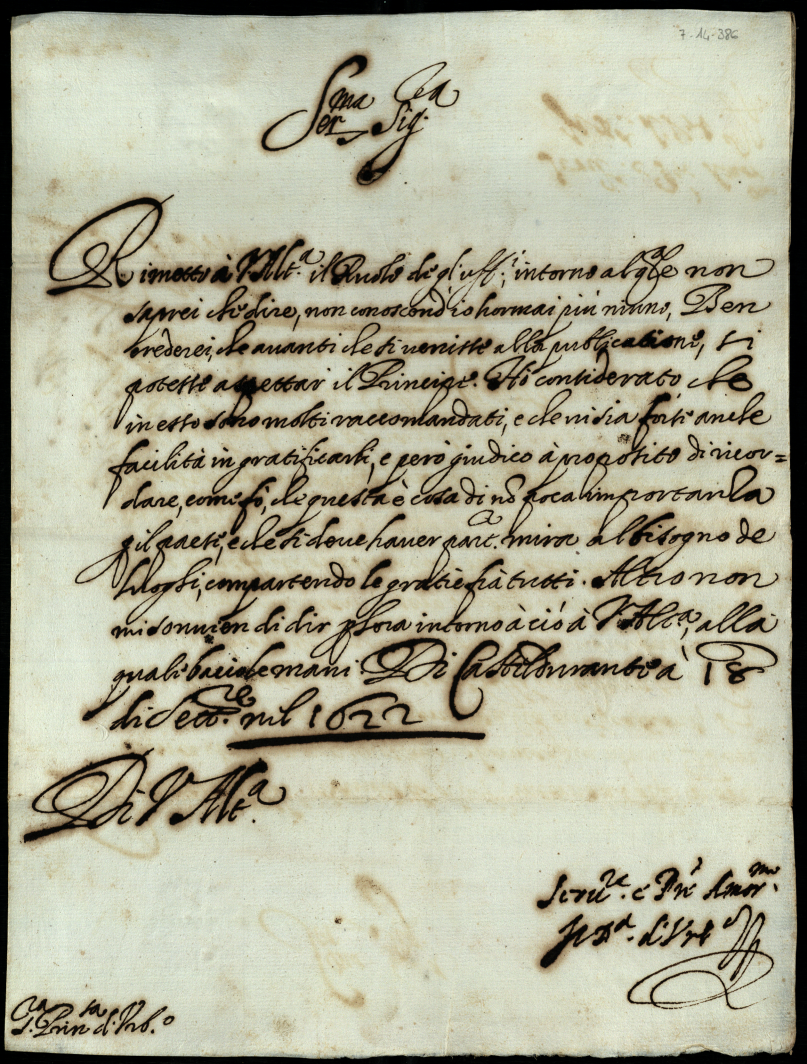 7-14-386
Ser.ma Sig.ra
Rimetto à V. Alt.a il Ruolo degl'uff.i, intorno al q.ale non
saprei che dire, non conoscend'io hormai più niuno, Ben
crederei, che avanti che si venisse alla publicatione, si
potesse aspettar il Principe. Hò considerato che
in esso sono molti raccomandati, e che vi sia forse anche
facilità in gratificarli, e però giudico à proposito di ricor=
dare, come fò, che questa è cosa di nõ poca importanza
p il paese, e che si deve haver part.re mira al bisogno de
luoghi, compartendo le gratie frà tutti. Altro non
mi sovvien di dir p hora intorno à ciò à V. Alt.a, alla
quale bacio le mani. Di Casteldurante à 18
di Dec.re nil 1622
Di V. Alt.a
Serv.re e P.re Amor.mo
Il D.a d'Urb.o
S.ra Prin.sa d'Urb.o